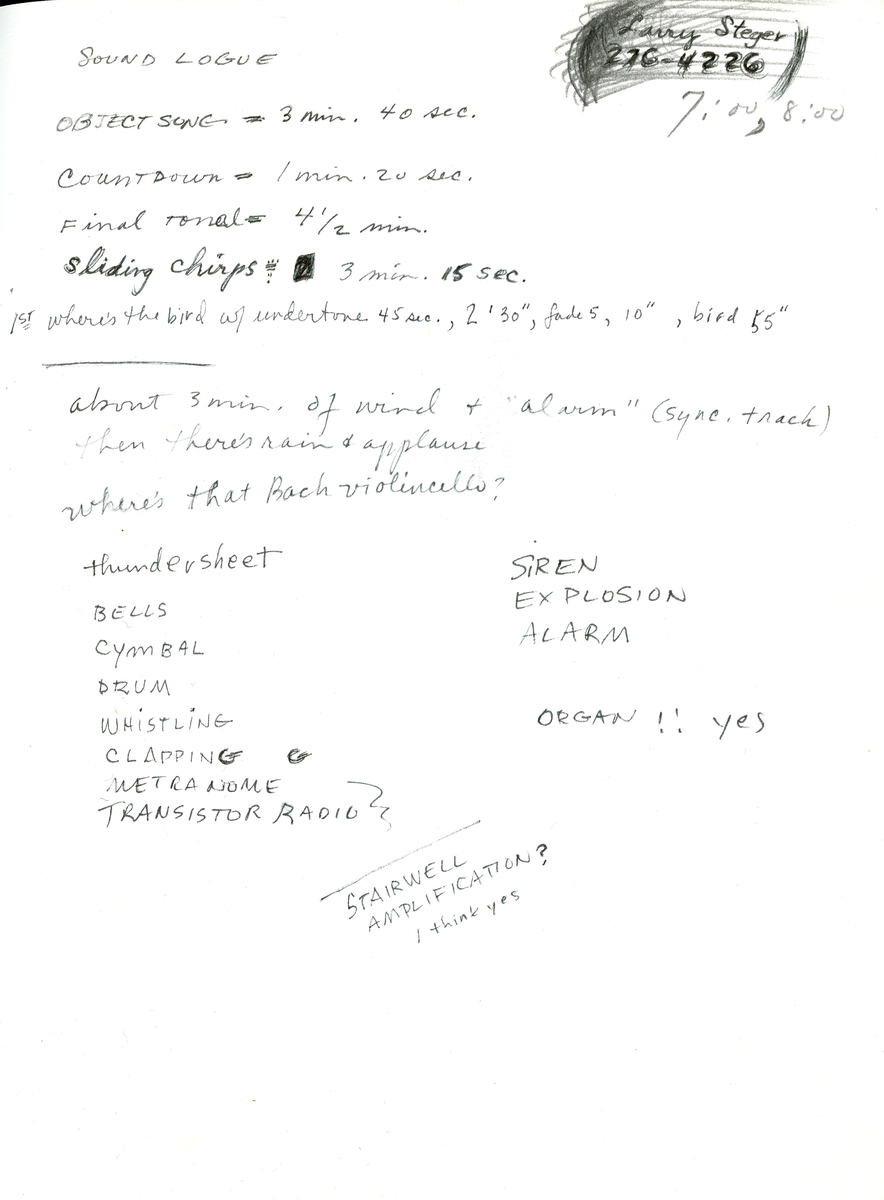 Larry Steger
276-4226
7:00, 8:00
SOUND LOGUE
OBJECT SONG = 3 min. 40 sec.
COUNTDOWN = 1 min. 20 sec.
Final tonal = 4 1/2 min.
sliding chirps = 3 min. 15 sec.
1st where's the bird w/ undertone 45 sec., 2'30", fade 5, 10", bird 55"
about 3 min. of wind + "alarm" (sync. track)
then there's rain & applause
where's that Bach violincello?
thundersheet
BELLS
CYMBAL
DRUM
WHISTLING
CLAPPING G
METRANOME
TRANSISTOR RADIO
SIREN
EXPLOSION
ALARM
ORGAN !! yes
STAIRWELL
AMPLIFICATION?
I think yes